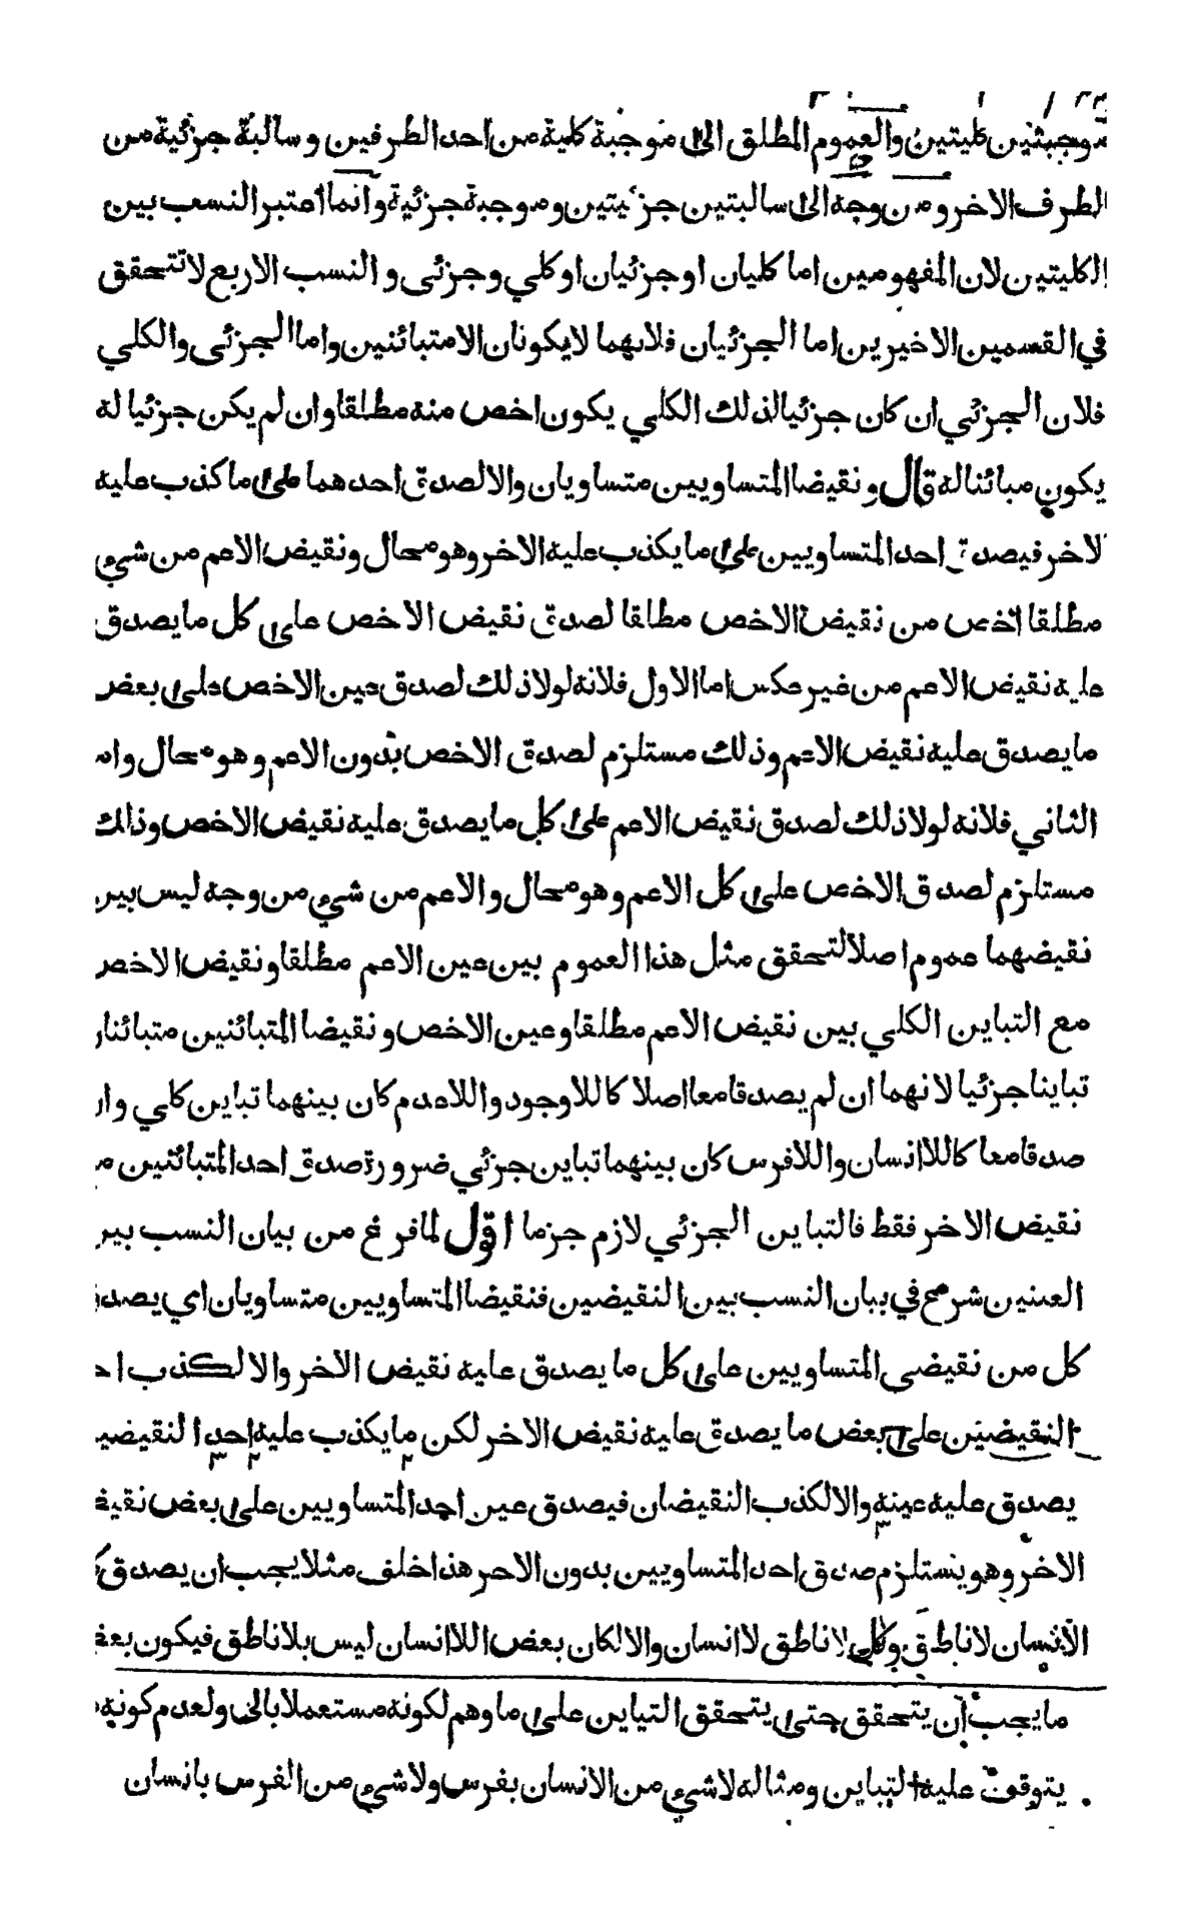 موجبتين كليتين والعموم المطلق الى موجبة كلية من احد الطرفين وسالبة جزئية من
الطرف الاخر ومن وجه الى سالبتين جزئيتين وموجبة جزئية وانما اعتبر النسب بين
الكليتين لان المفهومين اما كليان او جزئيان او كلي وجزئى والنسب الاربع لا تتحقق
في القسمين الاخيرين اما الجزئيان فلانهما لا يكونان الا متبائنين واما الجزئى والكلي
فلان الجزئي ان كان جزئيا لذلك الكلي يكون اخص منه مطلقا وان لم يكن جزئيا له
يكون مبائنا له قال ونقيضا المتساويين متساويان والا لصدق احدهما على ما كذب عليه
الاخر فيصدق احد المتساويين على ما يكذب عليه الاخر وهو محال ونقيض الاعم من شيء
مطلقا اخص من نقيض الاخص مطلقا لصدق نقيض الاخص على كل ما يصدق
عليه نقيض الاعم من غير عكس اما الاول فلانه لولا ذلك لصدق عين الاخص على بعض
ما يصدق عليه نقيض الاعم وذلك مستلزم لصدق الاخص بدون الاعم وهو محال واما
الثاني فلانه لولا ذلك لصدق نقيض الاعم على كل ما يصدق عليه نقيض الاخص وذلك
مستلزم لصدق الاخص على كل الاعم وهو محال والاعم من شيء من وجه ليس بين
نقيضهما عموم اصلا لتحقق مثل هذا العموم بين عين الاعم مطلقا ونقيض الاخص
مع التباين الكلي بين نقيض الاعم مطلقا وعين الاخص ونقيضا المتبائنين متبائنان
تباينا جزئيا لانهما ان لم يصدقا معا اصلا كاللاوجود واللاعدم كان بينهما تباين كلي وان
صدقا معا كاللاانسان واللافرس كان بينهما تباين جزئي ضرورة صدق احد المتبائنين مع
نقيض الاخر فقط فالتباين الجزئي لازم جزما اقول لما فرغ من بيان النسب بين
العينين شرع في بيان النسب بين النقيضين فنقيضا المتساويين متساويان اي يصدق
كل من نقيضى المتساويين على كل ما يصدق عليه نقيض الاخر والا لكذب احد
النقيضين على بعض ما يصدق عليه نقيض الاخر لكن ما يكذب عليه احد النقيضين
يصدق عليه عينه والا لكذب النقيضان فيصدق عين احد المتساويين على بعض نقيض
الاخر وهو يستلزم صدق احد المتساويين بدون الاخر هذا خلف مثلا يجب ان يصدق كل
لا انسان لا ناطق وكل لا ناطق لا انسان والا لكان بعض اللاانسان ليس بلا ناطق فيكون بعض
ما يجب ان يتحقق حتى يتحقق التباين على ما وهم لكونه مستعملا بالى ولعدم كونه
يتوقف عليه التباين ومثاله لا شيء من الانسان بفرس ولا شيء من الفرس بانسان